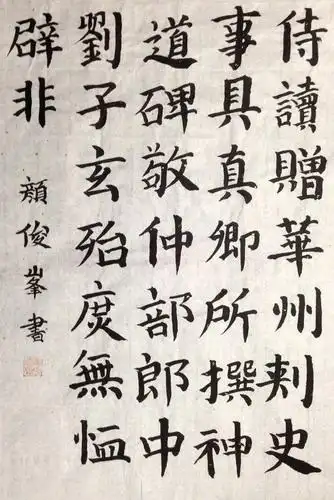 侍讀贈華州刾史
事具真卿所撰神
道碑敬仲部郎中
劉子玄殆庻無恤
辟非
俊峯書